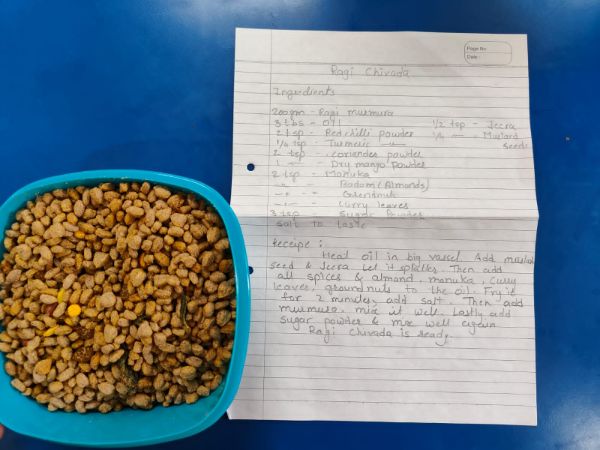 Page No.
Date :
Ragi Chivada
Ingredients
200gm - Ragi murmura
3 tbs - Oil 1/2 tsp - Jeera
2 tsp - Red chilli powder 1/4 — - Mustard
1/4 tsp - Turmeric — seeds
2 tsp - coriander powder
1 — - Dry mango powder
2 tsp - Manuka
-"- - Badam (Almonds)
-"- -
-"- - Curry leaves
3 tsp - Sugar Powder
Salt to taste
Receipe :
Heat oil in big vassel. Add mustard
seed & Jeera let it splatter. Then add
all spices & almond, manuka, curry
leaves, groundnuts to the oil. Fry it
for 2 minutes, add salt. Then add
murmura, mix it well. Lastly add
sugar powder & mix well again.
Ragi Chivada is ready.